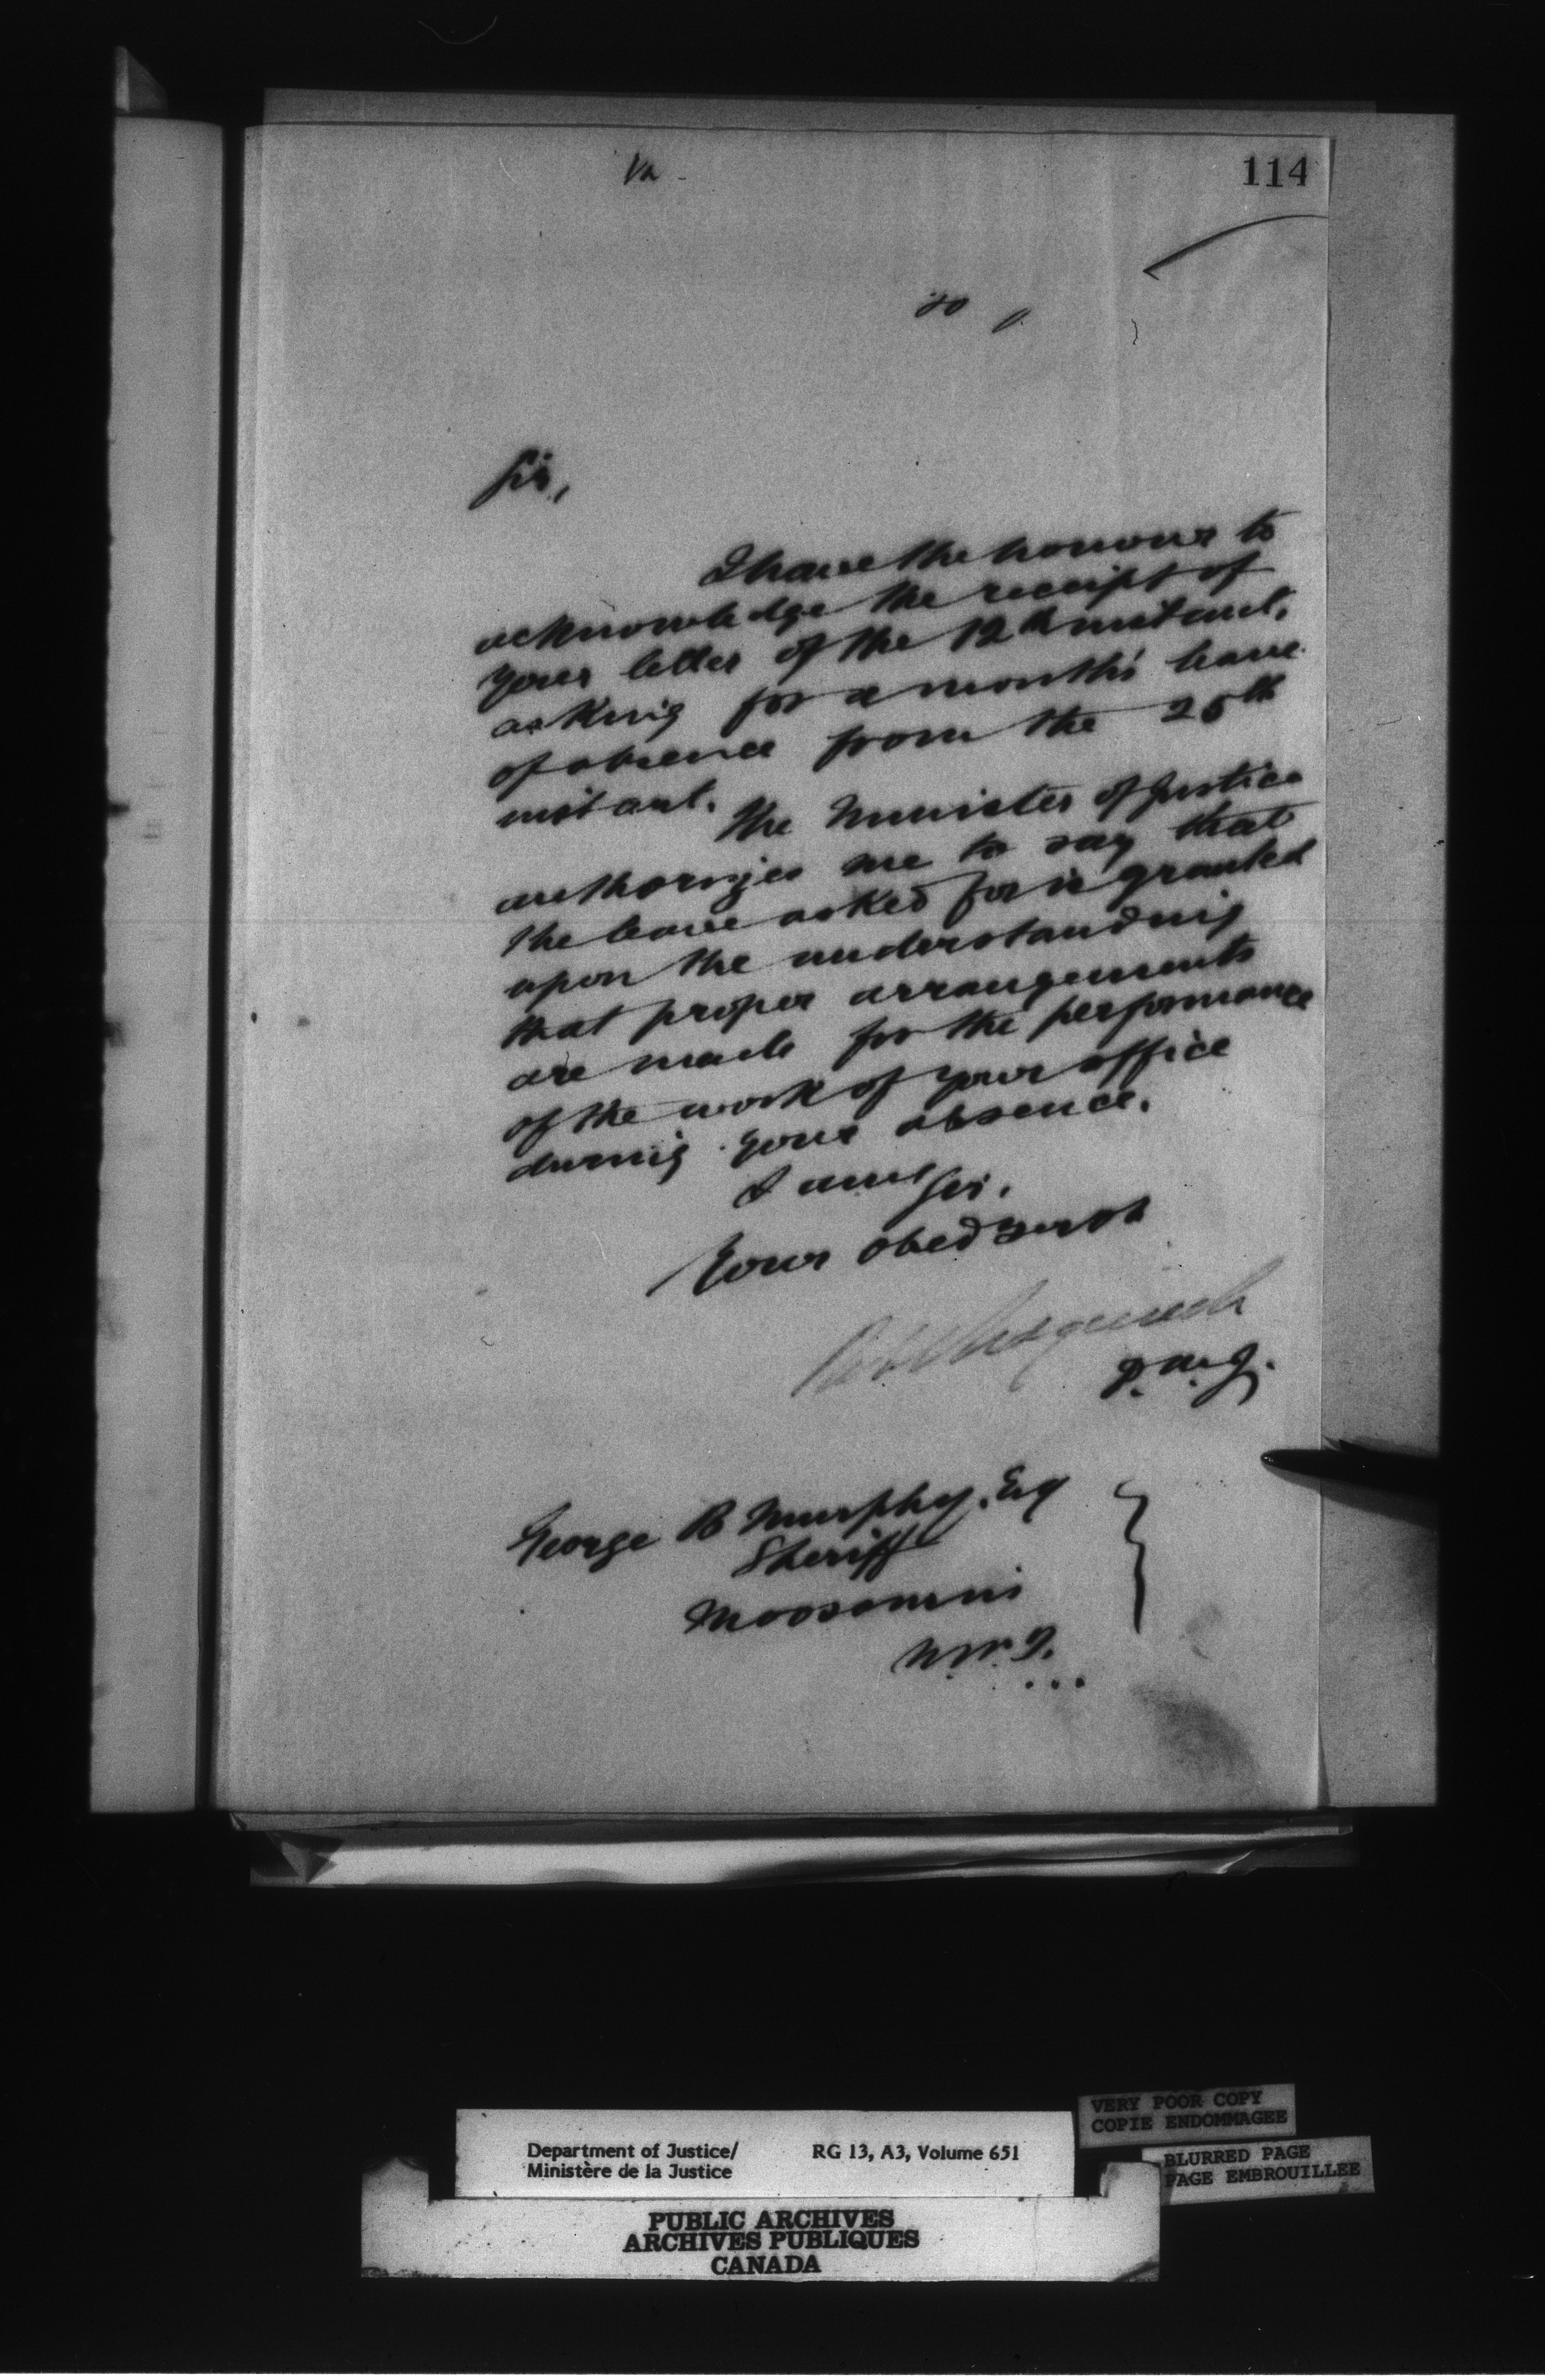 114
Sir,
I have the honour to
acknowledge the receipt of
your letter of the 12th instant,
asking for a month's leave
of absence from the 25th
instant.
The Minister of Justice
authorizes me to say that
the leave asked for is granted
upon the understanding
that proper arrangements
are made for the performance
of the work of your office
during your absence.
I am Sir,
Your obed Servt
George B Murphy, Esq
Sheriff
Moosomin
N.W.T.
VERY POOR COPY
COPIE ENDOMMAGEE
BLURRED PAGE
PAGE EMBROUILLEE
Department of Justice/ RG 13, A3, Volume 651
Ministère de la Justice
PUBLIC ARCHIVES
ARCHIVES PUBLIQUES
CANADA